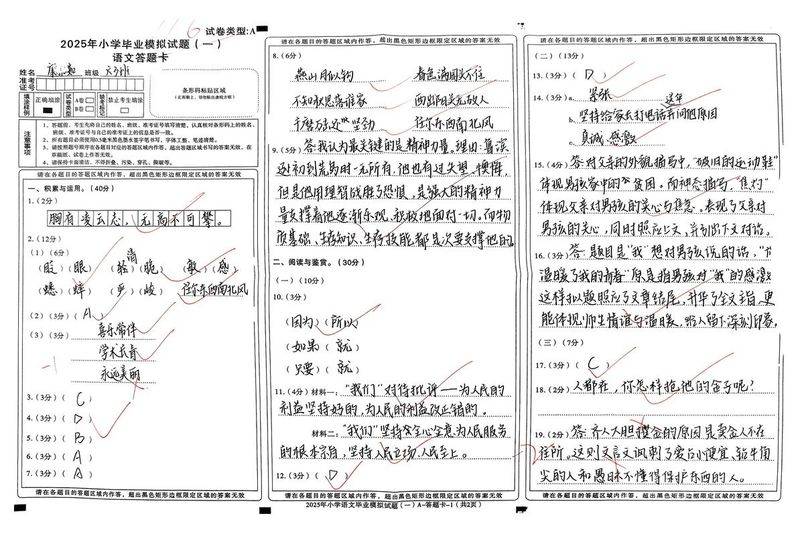 116
试卷类型:A
2025年小学毕业模拟试题（一）
语文答题卡
姓名
班级
准考证号
条形码粘贴区域
填涂样例
正确填涂
试卷类型
A卷
B卷
禁止考生填涂
注意事项
1、答题前，考生先将自己的姓名、班级、准考证号填写清楚，认真核对条形码上的姓名、班级、准考证号与自己的准考证上的信息是否一致。
请在各题目的答题区域内作答，超出黑色矩形边框限定区域的答案无效
一、积累与运用。（40分）
1.（2分）
胸有凌云志，无高不可攀。
2.（12分）
（1）（6分）
（2）（3分）（ A ）
（3）（3分）
喜乐常伴
学术长青
永远美丽
-1
3.（3分）（ C ）
4.（3分）（ D ）
5.（3分）（ B ）
6.（3分）（ A ）
7.（3分）（ A ）
请在各题目的答题区域内作答，超出黑色矩形边框限定区域的答案无效
请在各题目的答题区域内作答，超出黑色矩形边框限定区域的答案无效
8.（6分）
燕山月似钩 春色满园关不住
不知秋思落谁家 西出阳关无故人
千磨万还坚劲 任尔东西南北风
9.（3分）答:我认为最关键的是精神力量，理由:鲁滨
逊初到荒岛时一无所有，他也有过失望、懊悔，
但是他用理智战胜了恐惧，是强大的精神力
量支撑着他逐渐乐观，积极地面对一切。而物
质基础、生存知识、生存技能都是次要支撑他的。
二、阅读与鉴赏。（30分）
（一）（10分）
10.（3分）
（因为）（所以）
（如果）（就）
（只要）（就）
11.（4分）材料一：“我们”对待批评——为人民的
利益坚持好的，为人民的利益改正错的。
材料二：“我们”坚持全心全意为人民服务
的根本宗旨，坚持人民立场、人民至上。
12.（3分）（ D ）
请在各题目的答题区域内作答，超出黑色矩形边框限定区域的答案无效
2025年小学语文毕业模拟试题（一）A-答题卡-1（共2页）
请在各题目的答题区域内作答，超出黑色矩形边框限定区域的答案无效
（二）（13分）
13.（3分）（ D ）
14.（3分）a. 紧张
b. 坚持给家长打电话并问他原因
这年
c. 真诚、感激
15.（4分）答:对父亲的外貌描写中，“破旧的运动鞋”
体现男孩家中的贫困，而神态描写，“焦灼”
体现父亲对男孩的关心与焦急，表现了父亲对
男孩的关心，同时照应上文，并引出下文对话。
16.（3分）答:题目是“我”想对男孩说的话，“
温暖了我的青春”原是指男孩对“我”的感激
这样拟题照应了文章结尾，升华了全文主旨，更
能体现师生情谊与温暖，给人留下深刻印象。
（三）（7分）
17.（3分）（ C ）
18.（2分）人都在，你怎样抢他的金子呢？
19.（2分）答:齐人大胆攫金的原因是卖金人不在
住所。这则文言文讽刺了爱占小便宜、钻牛角
尖的人和愚昧不懂得保护东西的人。
请在各题目的答题区域内作答，超出黑色矩形边框限定区域的答案无效